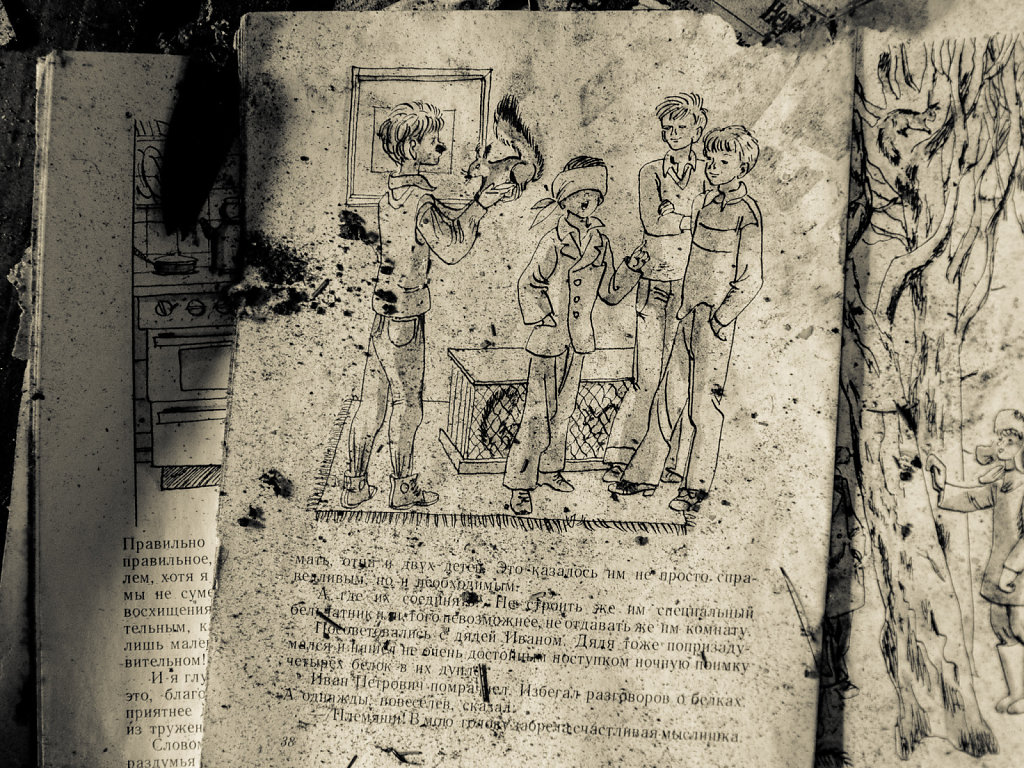 Правильно
правильное,
лем, хотя я
мы не суме
восхищения
тельным, к
лишь мале
вительном!
И я глу
это, благо
приятнее
из тружен
Словом
раздумья
мать, отца и двух детей. Это казалось им не просто спра-
ведливым, но и необходимым.
А где их соединять? Не строить же им специальный
бельчатник или, того невозможнее, не отдавать же им комнату.
Посоветовались с дядей Иваном. Дядя тоже попризаду-
мался и нашел не очень достойным поступком ночную поимку
четырёх белок в их дупле.
Иван Петрович помрачнел. Избегал разговоров о белках.
А однажды, повеселев, сказал:
— Племяши! В мою голову забрела счастливая мыслишка.
38